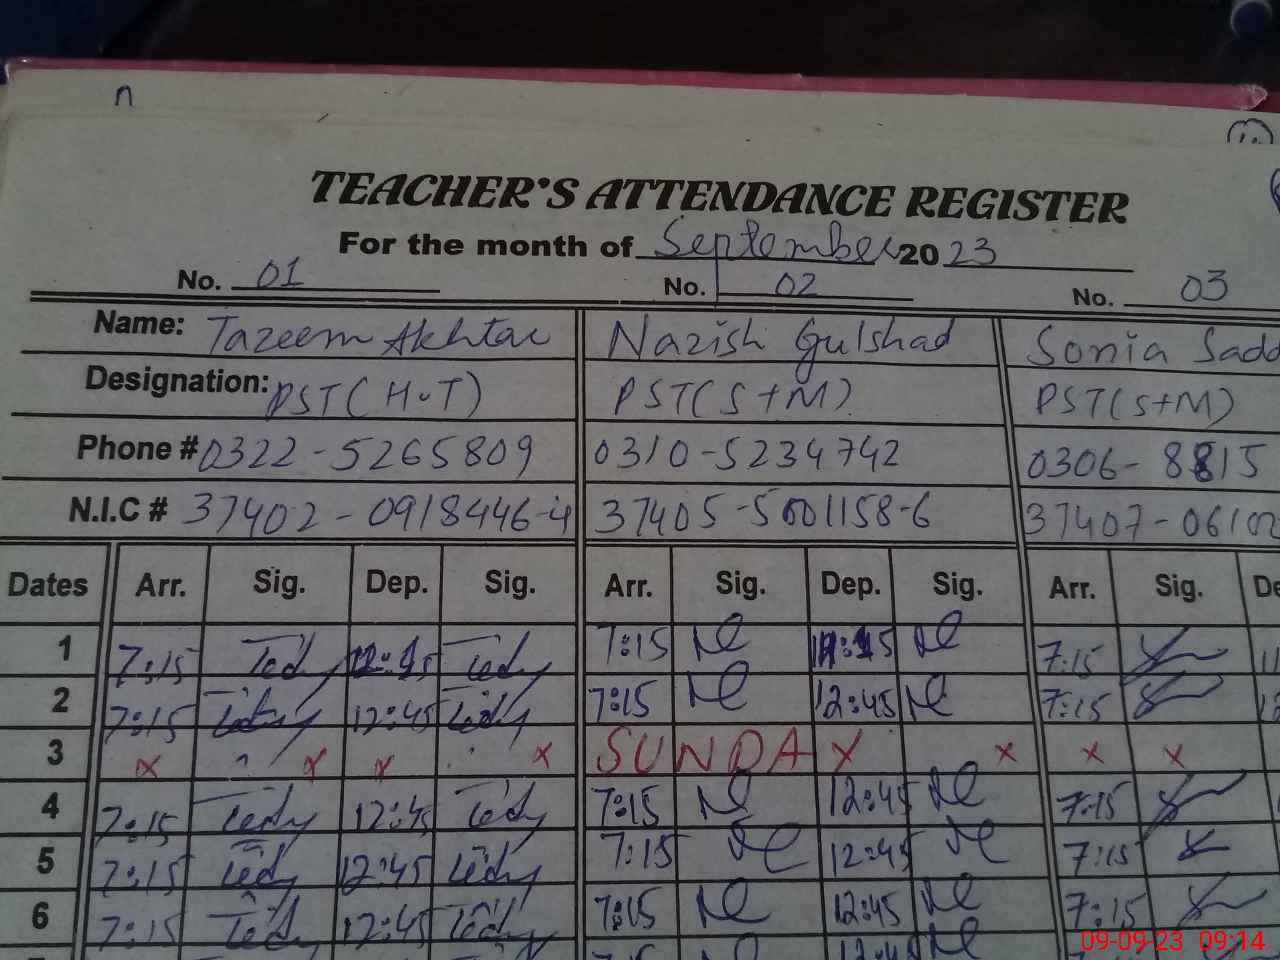 n
TEACHER'S ATTENDANCE REGISTER
For the month of September 2023
No. 01 No. 02 No. 03
Name: Tazeem Akhtar Nazish Gulshad Sonia Sadd
Designation: PST(H.T) PST(S+M) PST(S+M)
Phone # 0322-5265809 0310-5234742 0306-8815
N.I.C # 37402-0918446-4 37405-5001158-6 37407-06102
Dates Arr. Sig. Dep. Sig. Arr. Sig. Dep. Sig. Arr. Sig. De
1 7:15 12:45 7:15 7:15
2 7:15 12:45 7:15 12:45 7:15
3 x x x x SUNDAY x x x
4 7:15 12:45 7:15 12:45 7:15
5 7:15 12:45 7:15 12:45 7:15
6 7:15 12:45 7:15 12:45 7:15
09-09-23 09:14